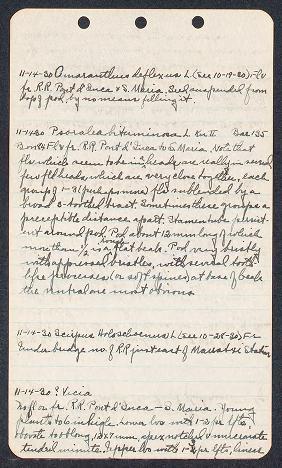 11-14-30 Amaranthus deflexus L (See 10-19-30) Fl v
fr. R.R. Pont d'Inca & S. Maria. Seed suspended from
top of pod, by no means filling it.
11-14-30 Psoralea bituminosa L. Bae 135
Bon 24 Fl v fr. R.R. Pont d'Inca to S. Maria. Note that
fls which seem to be in heads, are really in several,
few fld heads, which are very close together, each
group of 1-3 fls subtended by a
broad 3-toothed bract. Sometimes these groups a
preceptible distance apart. Stamen tube persist-
ent around pod. Pod about 12 mm long of which
more than ½ is a flat beak. Pod very bristly
with appressed bristles, with several tooth
like processes (or soft spines) at base of beak
the ventral one most obvious.
11-14-30 Scirpus Holoschoenus L (See 10-28-30) Fr
Under bridge no. of R.R. just east of Marratxi Station
11-14-30 ? Vicia
No fl or fr. R.R. Pont d'Inca - S. Maria. Young
plants to 6 in high. Lower lvs with 1-2 pr lfts,
obovate to oblong, 12x7 mm, apex notched & mucronate
tendril minute. Upper lvs with 1-2 pr lfts, linear